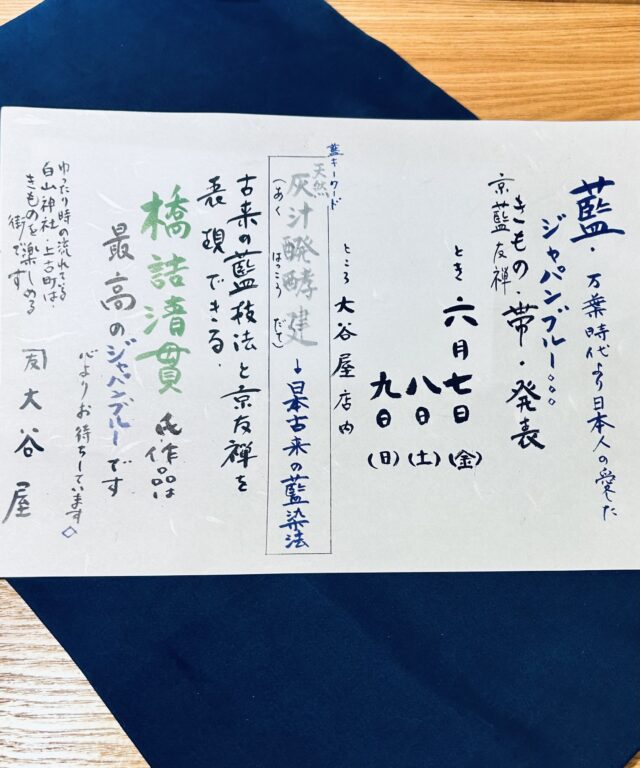 藍・万葉時代より日本人の愛した
ジャパンブルー。。。
きもの・帯・発表
京藍友禅
とき 六月七日(金)
八日(土)
九日(日)
ところ 大谷屋店内
藍キーワード
天然
灰汁醗酵建→日本古来の藍染法
(あく はっこう だて)
古来の藍技法と京友禅を
表現できる・
橋詰清貫氏作品は
最高のジャパンブルーです
心よりお待ちしています◇
ゆったり時の流れている
白山神社・上古町は、
きものを楽しめる
街です
友 大谷屋